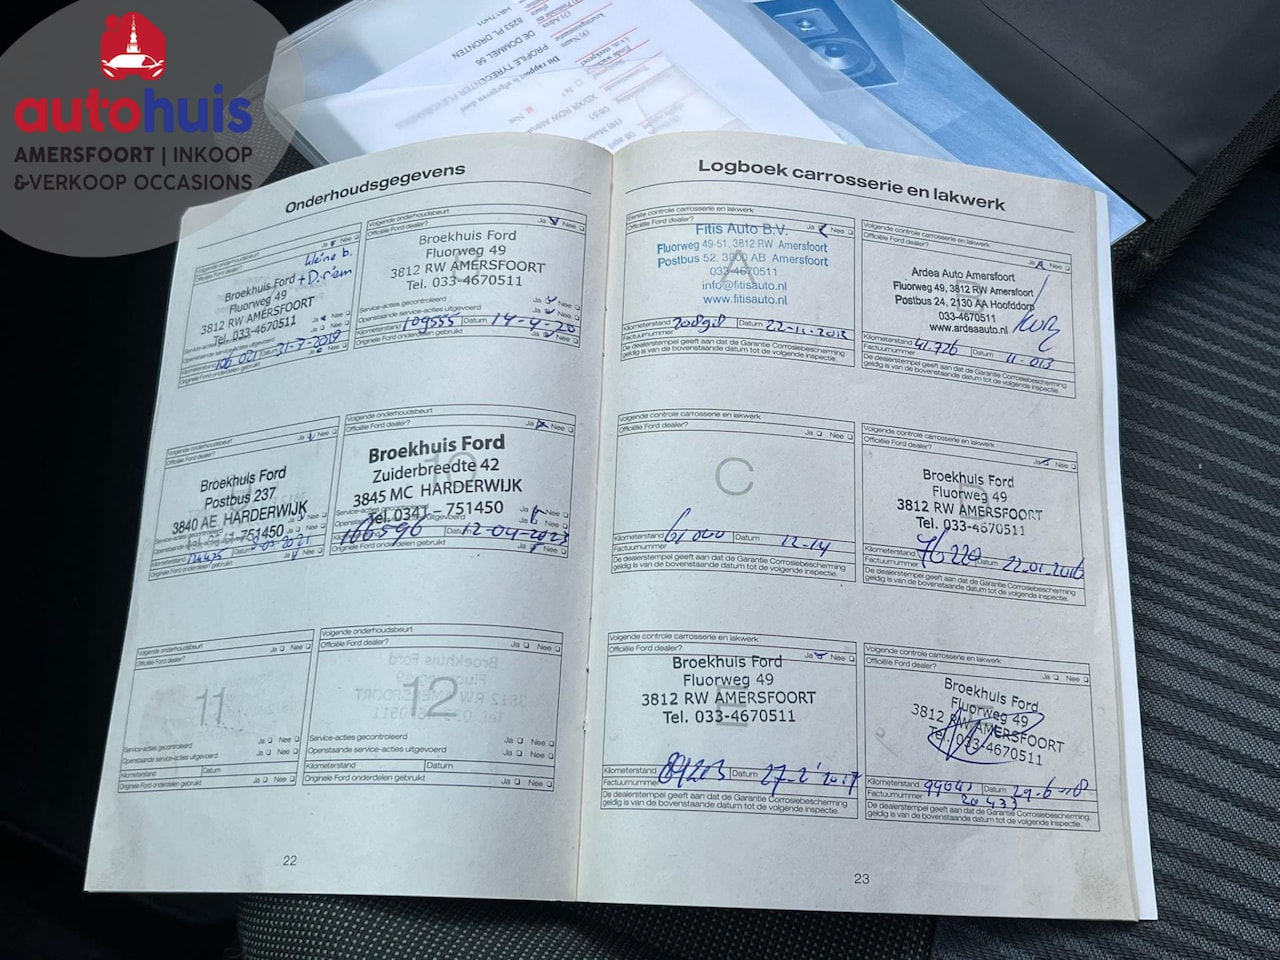 autohuis
AMERSFOORT | INKOOP
&VERKOOP OCCASIONS
8253 PL DRONTEN
DE DOMMEL 56
Onderhoudsgegevens
Volgende onderhoudsbeurt
Officiële Ford dealer?
Ja Nee
kleine b.
Broekhuis Ford
Fluorweg 49
3812 RW AMERSFOORT
Tel. 033-4670511
Kilometerstand Datum
Originele Ford onderdelen gebruikt
Volgende onderhoudsbeurt
Officiële Ford dealer?
Ja Nee
Broekhuis Ford
Fluorweg 49
3812 RW AMERSFOORT
Tel. 033-4670511
Service-acties gecontroleerd
Openstaande service-acties uitgevoerd
Kilometerstand 109555 Datum 14-4-20
Originele Ford onderdelen gebruikt
Volgende onderhoudsbeurt
Officiële Ford dealer?
Ja Nee
Broekhuis Ford
Postbus 237
3840 AE HARDERWIJK
Originele Ford onderdelen gebruikt
Volgende onderhoudsbeurt
Officiële Ford dealer?
Ja Nee
10
Broekhuis Ford
Zuiderbreedte 42
3845 MC HARDERWIJK
Tel. 0341 - 751450
166596 Datum 12-04-2023
Originele Ford onderdelen gebruikt
Volgende onderhoudsbeurt
Officiële Ford dealer?
Ja Nee
11
Service-acties gecontroleerd Ja Nee
Openstaande service-acties uitgevoerd Ja Nee
Kilometerstand Datum
Originele Ford onderdelen gebruikt Ja Nee
Volgende onderhoudsbeurt
Officiële Ford dealer?
Ja Nee
12
Service-acties gecontroleerd Ja Nee
Openstaande service-acties uitgevoerd Ja Nee
Kilometerstand Datum
Originele Ford onderdelen gebruikt Ja Nee
22
Logboek carrosserie en lakwerk
Eerste controle carrosserie en lakwerk
Officiële Ford dealer?
Ja Nee
A
Fitis Auto B.V.
Fluorweg 49-51, 3812 RW Amersfoort
Postbus 52, 3800 AB Amersfoort
033-4670511
info@fitisauto.nl
www.fitisauto.nl
Kilometerstand Datum 22-11-2012
Factuurnummer
De dealerstempel geeft aan dat de Garantie Corrosiebescherming
geldig is van bovenstaande datum tot de volgende inspectie.
Volgende controle carrosserie en lakwerk
Officiële Ford dealer?
Ja Nee
Ardea Auto Amersfoort
Fluorweg 49, 3812 RW Amersfoort
Postbus 24, 2130 AA Hoofddorp
033-4670511
www.ardeaauto.nl
Kilometerstand 41.726 Datum
Factuurnummer
De dealerstempel geeft aan dat de Garantie Corrosiebescherming
geldig is van bovenstaande datum tot de volgende inspectie.
Volgende controle carrosserie en lakwerk
Officiële Ford dealer?
Ja Nee
C
Kilometerstand 61000 Datum 12-14
Factuurnummer
De dealerstempel geeft aan dat de Garantie Corrosiebescherming
geldig is van bovenstaande datum tot de volgende inspectie.
Volgende controle carrosserie en lakwerk
Officiële Ford dealer?
Ja Nee
D
Broekhuis Ford
Fluorweg 49
3812 RW AMERSFOORT
Tel. 033-4670511
Kilometerstand 76229 Datum 22-01-2016
Factuurnummer
De dealerstempel geeft aan dat de Garantie Corrosiebescherming
geldig is van bovenstaande datum tot de volgende inspectie.
Volgende controle carrosserie en lakwerk
Officiële Ford dealer?
Ja Nee
E
Broekhuis Ford
Fluorweg 49
3812 RW AMERSFOORT
Tel. 033-4670511
Kilometerstand 89213 Datum 27-2-2017
Factuurnummer
De dealerstempel geeft aan dat de Garantie Corrosiebescherming
geldig is van bovenstaande datum tot de volgende inspectie.
Volgende controle carrosserie en lakwerk
Officiële Ford dealer?
Ja Nee
Broekhuis Ford
Fluorweg 49
3812 RW AMERSFOORT
Tel. 033-4670511
Kilometerstand Datum 29-6-18
Factuurnummer 20433
De dealerstempel geeft aan dat de Garantie Corrosiebescherming
geldig is van bovenstaande datum tot de volgende inspectie.
23